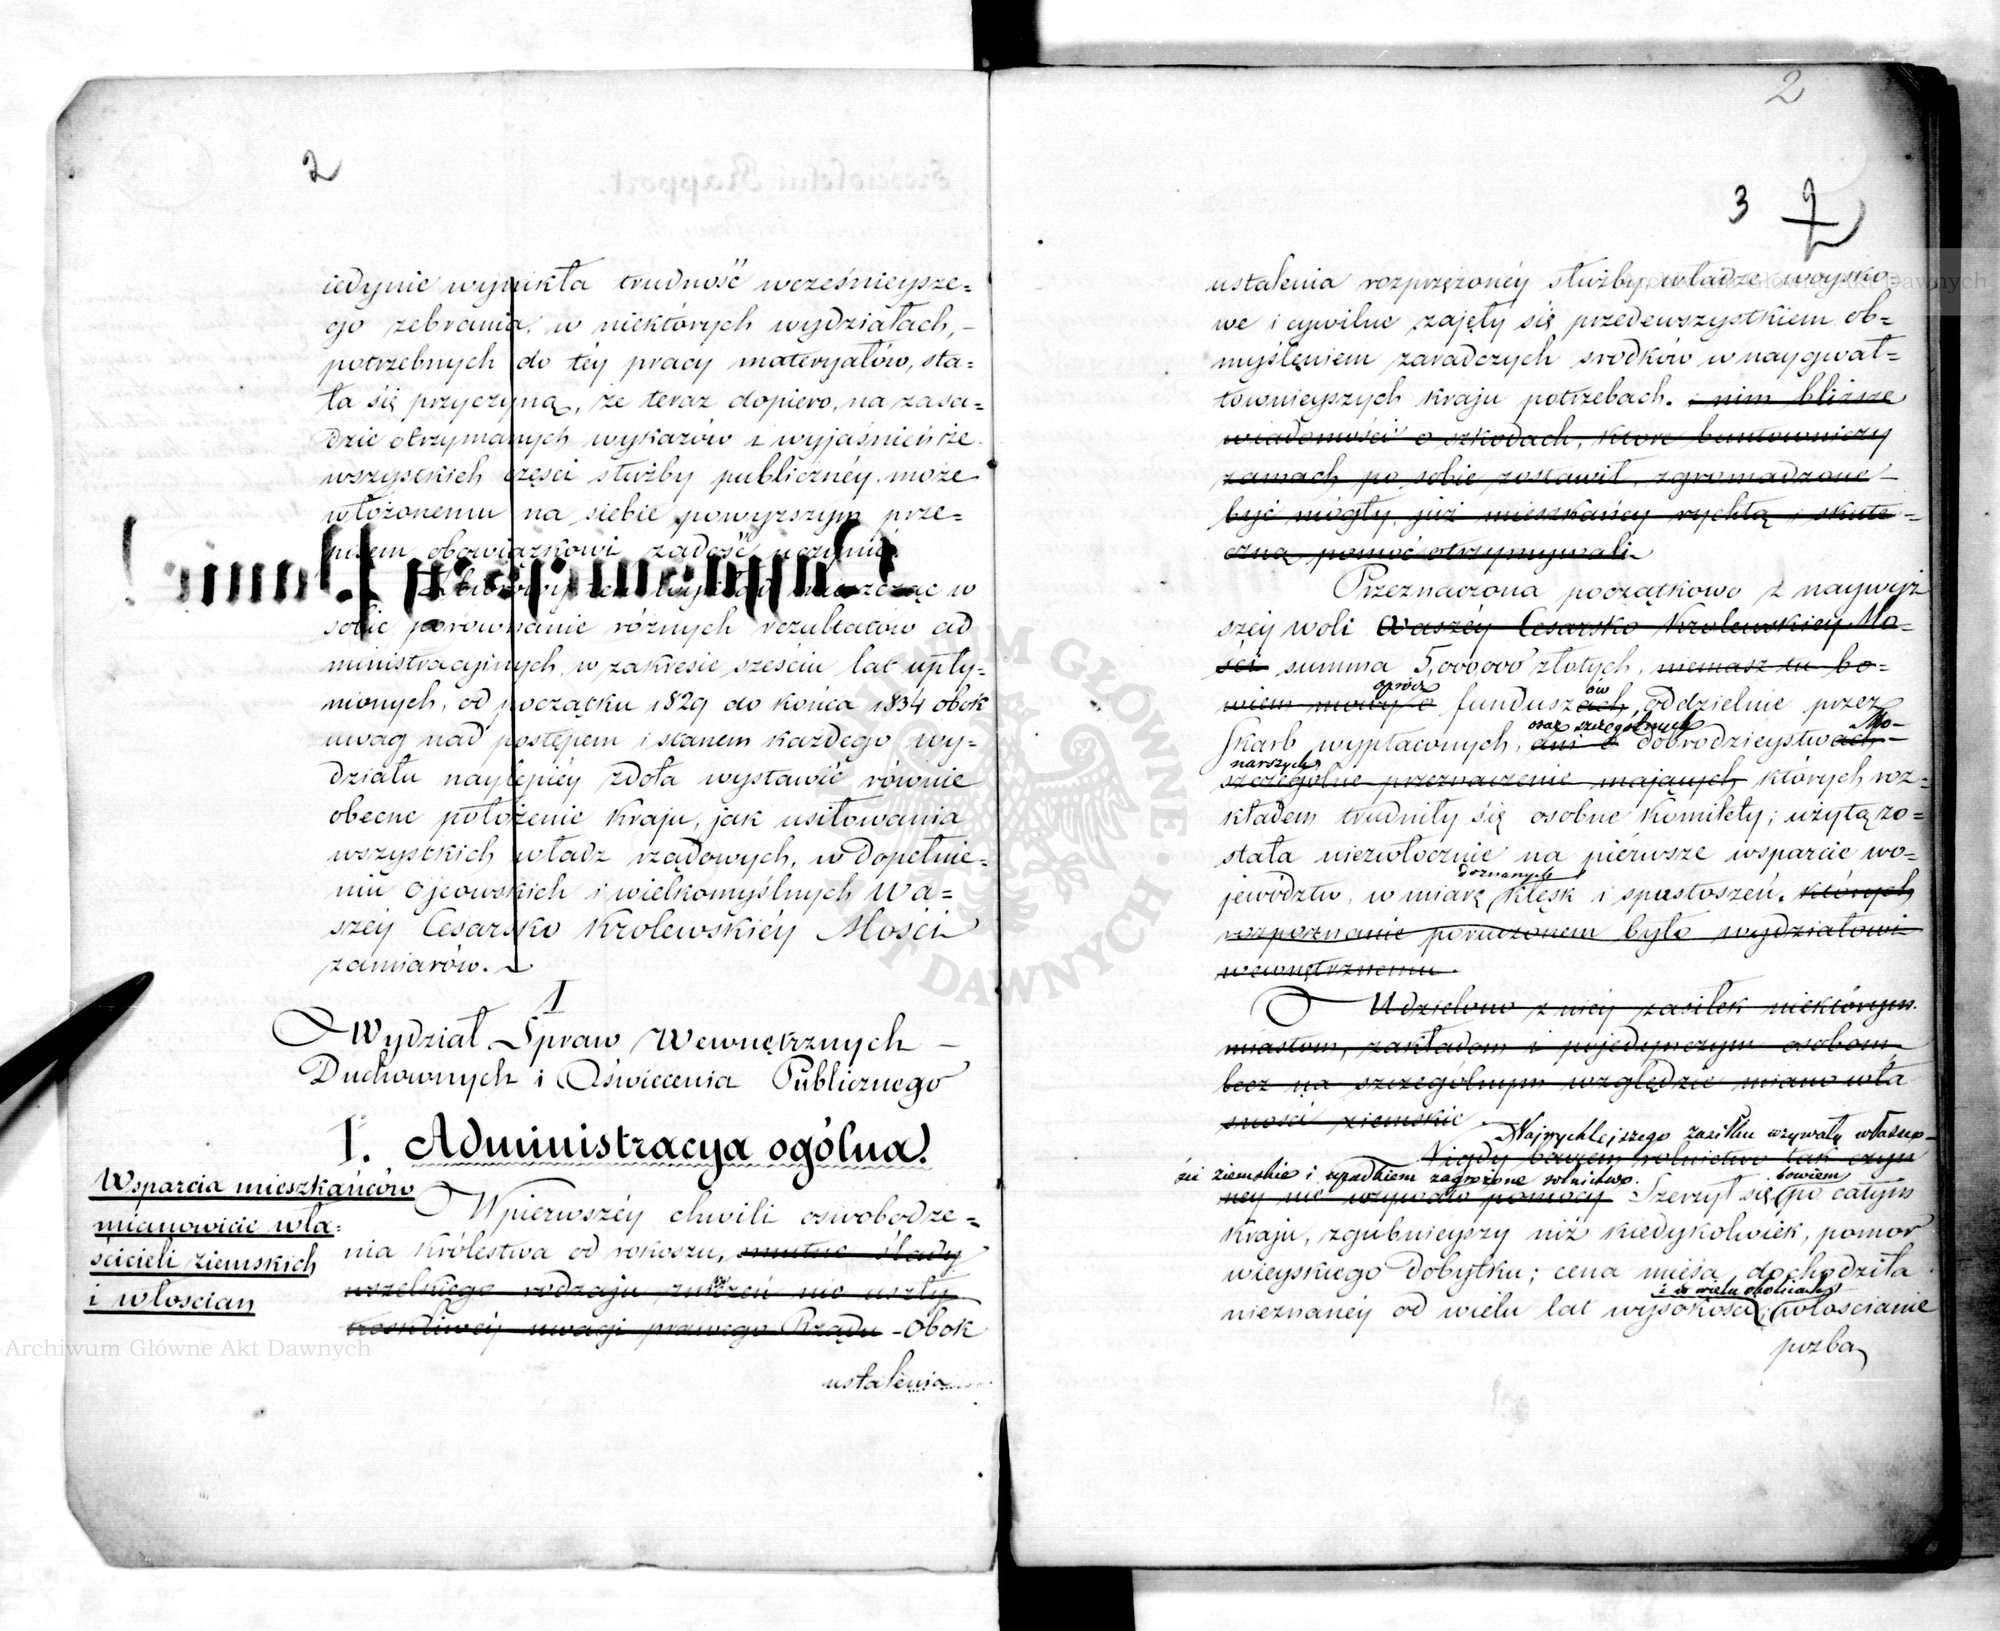 2
iedynie wynikła trudność wcześnieysze=
go zebrania, w niektórych wydziałach, -
potrzebnych do téy pracy materyałów, sta=
ła się przyczyną, że teraz dopiero, na zasa=
dzie otrzymanych wykazów i wyjaśnień ze
wszystkich części służby publicznéy, może
włożonemu na siebie powyższym prze=
pisem obowiązkowi zadość uczynić.
w
sobie porównanie różnych rezultatów ad
ministracyjnych, w zakresie sześciu lat upły-
nionych, od początku 1829 do końca 1834 obok
uwag nad postępem i stanem każdego wy=
działu naylepiéy zdoła wystawić równie
obecne położenie kraju, jak usiłowania
wszystkich władz rządowych, w dopełnie=
niu Ojcowskich i wielkomyślnych Wa=
széy Cesarsko Krolewskiéy Mości
zamiarów.
I
Wydział Spraw Wewnętrznych -
Duchownych i Oświecenia Publicznego
I. Administracya ogólna.
Wsparcia mieszkańców
mianowicie wła=
ścicieli ziemskich
i włoscian
W pierwszéy chwili oswobodze=
nia Królestwa od rokoszu, smutne ślady
wszelkiego rodzaju zniszczeń nie uszły
troskliwéy uwagi prawego Rządu - Obok
ustalenia
2
3 2
ustalenia rozprzężonéy służby, władze woysko=
we i cywilne zajęły się przedewszystkiem ob=
myśleniem zaradczych srodków w naygwał=
townieyszych kraju potrzebach. i nim bliższe
wiadomości o szkodach, ktore buntowniczy
zamach po sobie zostawił, zgromadzone -
być mogły, już mieszkańcy rychłą i skute=
czną pomoc otrzymywali.
Przeznaczona początkowo z naywyż
széy woli Waszéy Cesarsko Krolewskiey Mo=
ści summa 5,000000 złotych, niemasz tu bo=
oprócz ów
wiem mowy o funduszach, oddzielnie przez
oraz szczególnych Mo-
Skarb wypłaconych, ani o dobrodzieystwach -
narszych
szczególne przeznaczenie mających, których roz=
kładem trudniły się osobne Komitety; użytą zo=
stała niezwłocznie na pierwsze wsparcie wo=
doznanych
jewództw, w miarę klęsk i spustoszeń, których
rozpoznanie poruczonem było wydziałowi
wewnętrznemu.
Udzielono z niey zasiłek niektórym
miastom, zakładom i pojedynczym osobom
lecz na szczególnym względzie miano wła
sności ziemskie.
Najrychlejszego zasiłku wzywały własno-
Nigdy bowiem rolnictwo tak czyn
ści ziemskie i upadkiem zagrożone rolnictwo. bowiem
néy nie wzywało pomocy. Szerzył się po całym
kraju, zgubnieyszy niż kiedykolwiek, pomor
wieyskiego dobytku; cena mięsa dochodziła
i w wielu okolicach
nieznanéy od wielu lat wysokości; włoscianie
pozba
Archiwum Główne Akt Dawnych
ARCHIWUM GŁÓWNE AKT DAWNYCH
Archiwum Główne Akt Dawnych